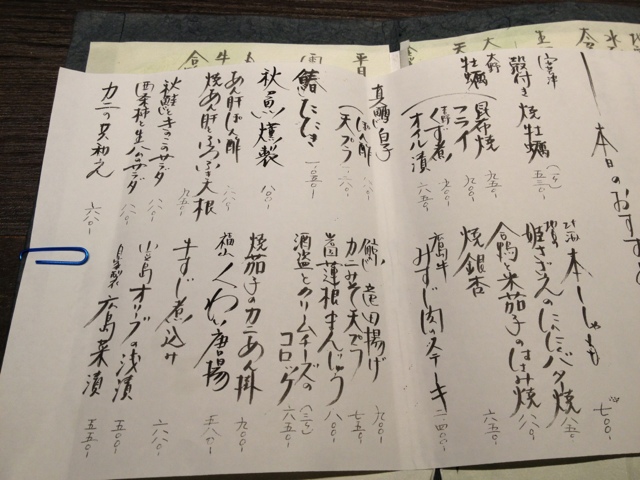 本日のおすす
殻付き焼牡蠣 (一ヶ) 五三〇-
牡蠣
昆布焼 九五〇-
フライ 九五〇-
くず煮 九五〇-
オイル漬 六五〇-
真鱈白子
ぽん酢
天ぷら
鰆たたき 一〇八〇-
秋刀魚燻製 八〇〇-
あん肝ぽん酢 八八〇-
焼あん肝とふろふき大根 九五〇-
秋鮭ときのこのサラダ 八八〇-
西条柿と生ハムのサラダ 八八〇-
カニの白和え 六八〇-
本ししゃも 七〇〇-
姫さざえのにんにくバター焼 八五〇-
合鴨と米茄子のはさみ焼 八八〇-
焼銀杏 六五〇-
広島牛みすじ肉のステーキ 二四〇〇-
竜田揚げ 九〇〇-
カニみそ天ぷら 七五〇-
岩国蓮根まんじゅう 八〇〇-
酒盗とクリームチーズのコロッケ (二ヶ) 六五〇-
焼茄子のカニあん掛 九〇〇-
福山くわい唐揚 五八〇-
牛すじ煮込み 六八〇-
小豆島オリーブの浅漬 五〇〇-
自家製広島菜漬 五五〇-